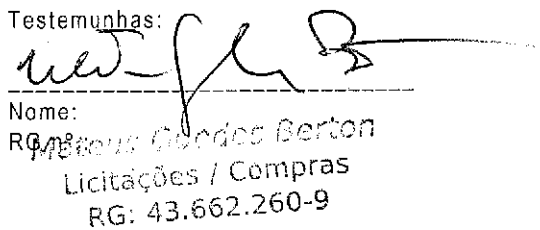 Testemunhas:
Nome:
RG nº
Mateus Guedes Berton
Licitações / Compras
RG: 43.662.260-9